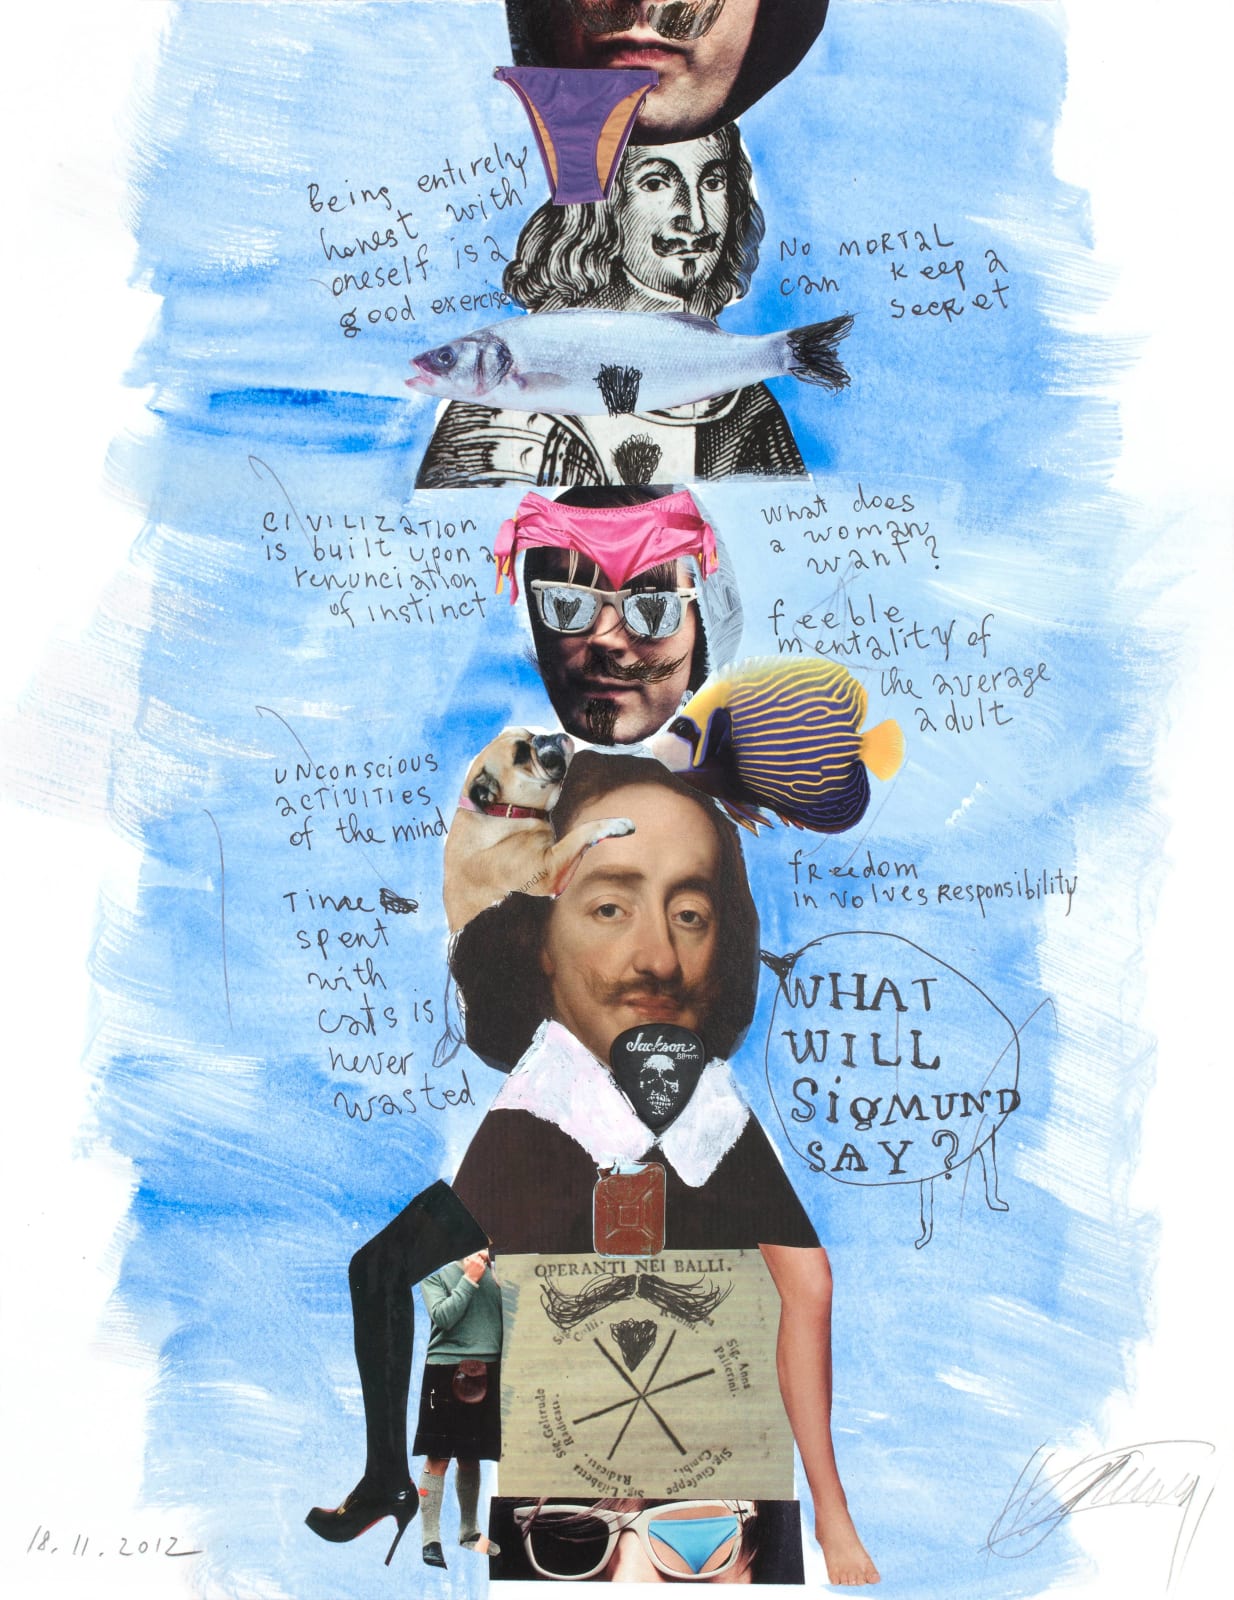 Being entirely
honest with
oneself is a
good exercise
No mortal
can keep a
secret
civilization
is built upon a
renunciation
of instinct
What does
a woman
want?
feeble
mentality of
the average
adult
unconscious
activities
of the mind
freedom
involves responsibility
Time
spent
with
cats is
never
wasted
Jackson
.88mm
WHAT
WILL
SiGMUND
SAY?
OPERANTI NEI BALLI.
Sig. Anna
Pallerini.
Sig. Giuseppe
Cambi.
Sig. Lisabetta
Radicati.
Sig. Geltrudo
Radicati.
18.11.2012